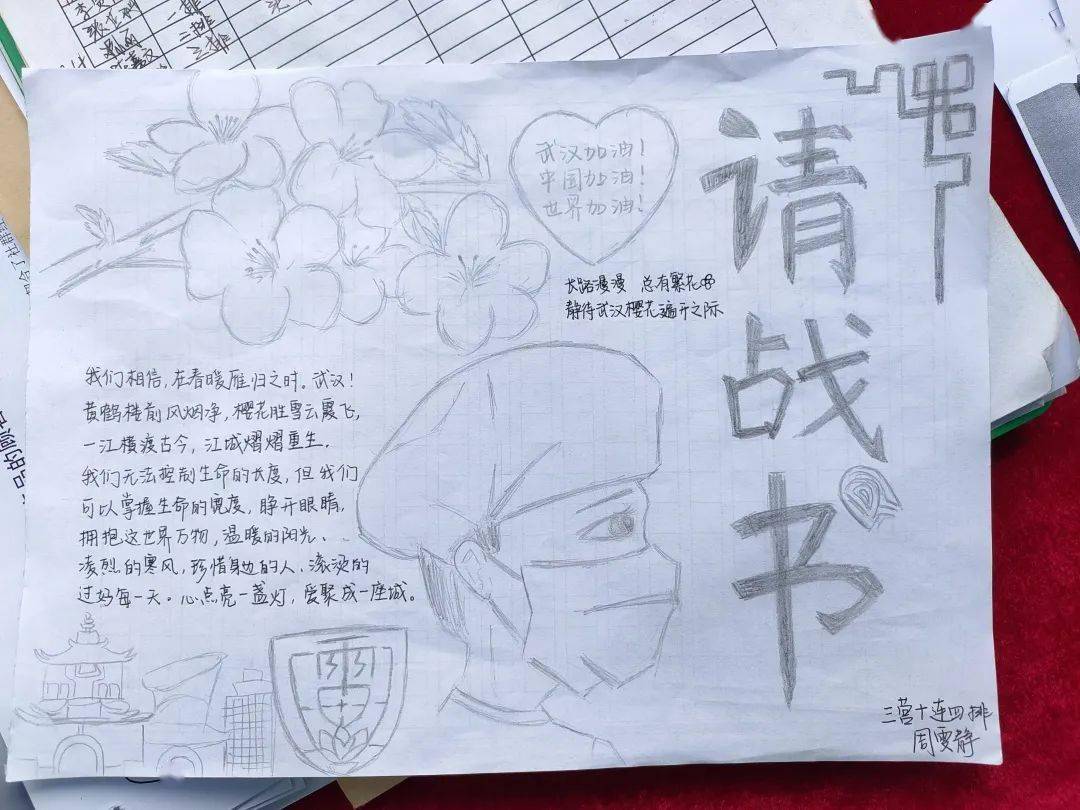 三排
三排
请战书
武汉加油!
中国加油!
世界加油!
长路漫漫 总有繁花
静待武汉樱花遍开之际
我们相信,在春暖雁归之时。武汉!
黄鹤楼前风烟净,樱花胜雪云霞飞,
一江横渡古今,江城熠熠重生.
我们无法控制生命的长度,但我们
可以掌握生命的宽度,睁开眼睛,
拥抱这世界万物,温暖的阳光、
凌烈的寒风,珍惜身边的人、滚烫的
过好每一天。心点亮一盏灯,爱聚成一座城。
三营十连四排
周雯静